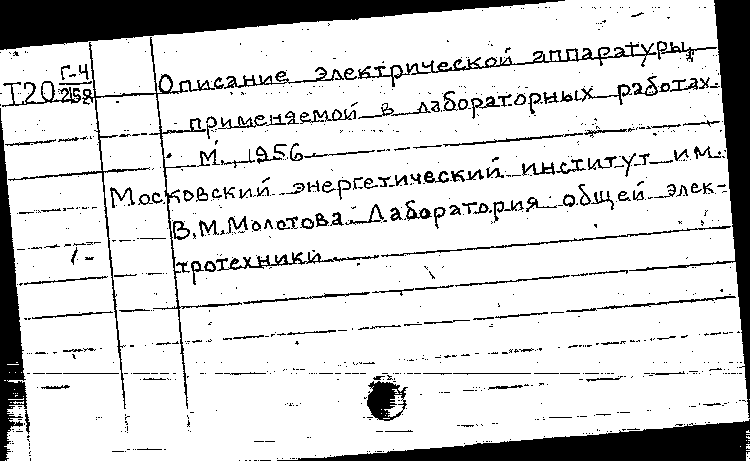 Г-4
Т20 258 Описание электрической аппаратуры,
применяемой в лабораторных работах.
М., 1956.
Московский энергетический институт им.
В.М.Молотова. Лаборатория общей элек-
тротехники.
1 -